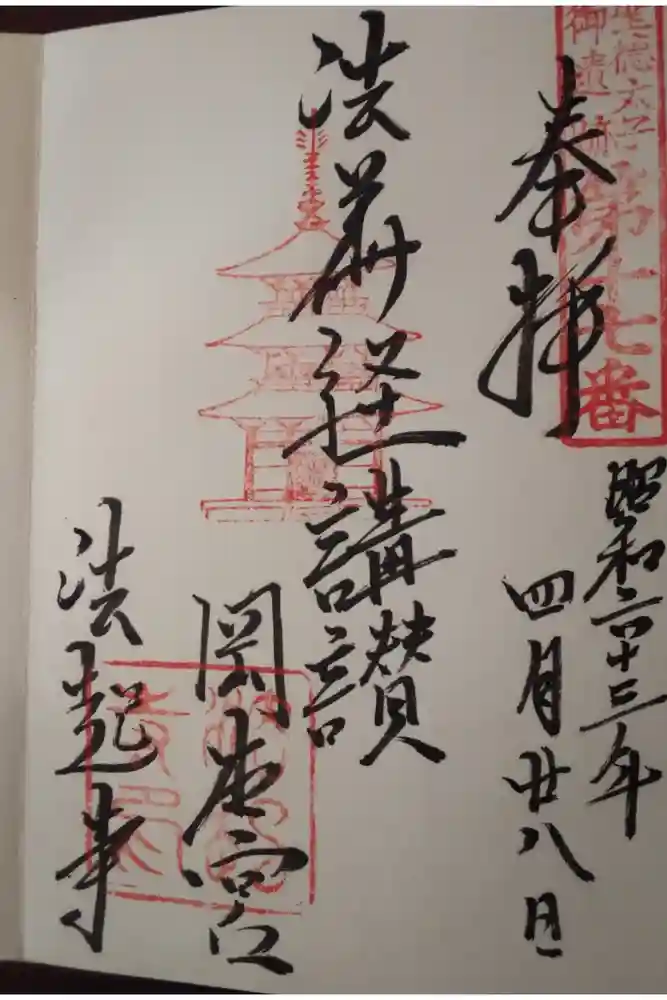 聖徳太子
御遺跡
第十七番
奉拝
昭和六十三年
四月廿八日
法華経講讃
岡本宮
法起寺